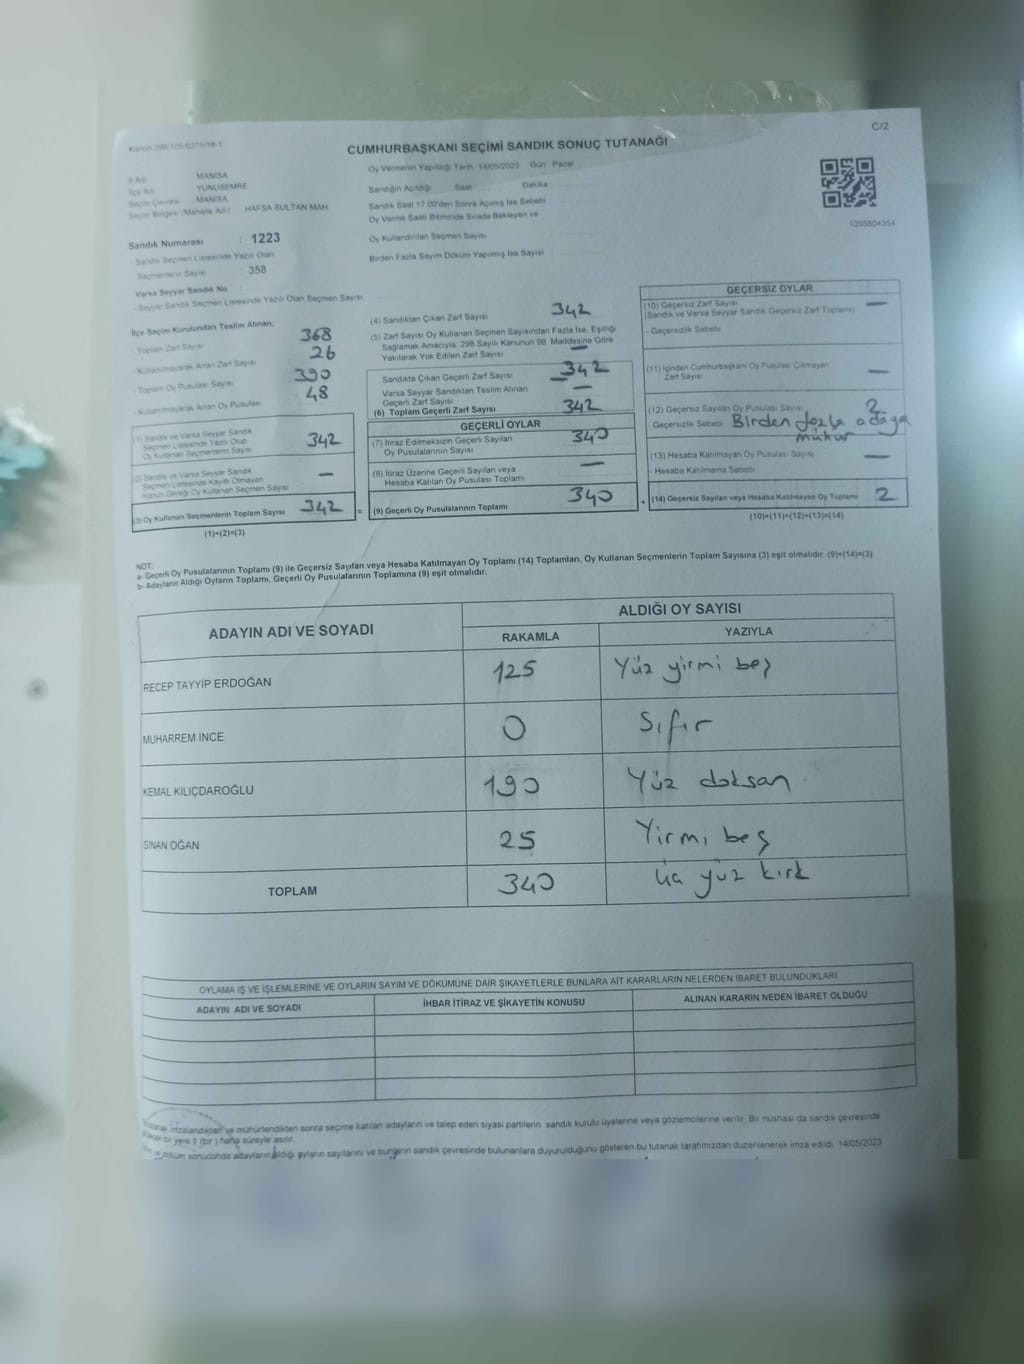 Kanun 298/105-6271/18-1
C/2
CUMHURBAŞKANI SEÇİMİ SANDIK SONUÇ TUTANAĞI
İl Adı MANİSA
İlçe Adı YUNUSEMRE
Seçim Çevresi : MANİSA
Seçim Bölgesi (Mahalle Adı) HAFSA SULTAN MAH.
Oy Vermenin Yapıldığı Tarih : 14/05/2023 Gün : Pazar
Sandığın Açıldığı Saat Dakika
Sandık Saat 17.00'den Sonra Açılmış İse Sebebi
Oy Verme Saati Bitiminde Sırada Bekleyen ve
Oy Kullandırılan Seçmen Sayısı
Birden Fazla Sayım Döküm Yapılmış İse Sayısı
1095804354
Sandık Numarası : 1223
- Sandık Seçmen Listesinde Yazılı Olan
Seçmenlerin Sayısı : 358
Varsa Seyyar Sandık No
- Seyyar Sandık Seçmen Listesinde Yazılı Olan Seçmen Sayısı
İlçe Seçim Kurulundan Teslim Alınan;
- Toplam Zarf Sayısı 368
- Kullanılmayarak Artan Zarf Sayısı 26
- Toplam Oy Pusulası Sayısı 390
- Kullanılmayarak Artan Oy Pusulası 48
(1) Sandık ve Varsa Seyyar Sandık
Seçmen Listesinde Yazılı Olup
Oy Kullanan Seçmenlerin Sayısı 342
(2) Sandık ve Varsa Seyyar Sandık
Seçmen Listesinde Kayıtlı Olmayan
Kanun Gereği Oy Kullanan Seçmen Sayısı —
(3) Oy Kullanan Seçmenlerin Toplam Sayısı 342 =
(1)+(2)=(3)
(4) Sandıktan Çıkan Zarf Sayısı 342
(5) Zarf Sayısı Oy Kullanan Seçmen Sayısından Fazla İse, Eşitliği
Sağlamak Amacıyla, 298 Sayılı Kanunun 98. Maddesine Göre
Yakılarak Yok Edilen Zarf Sayısı —
Sandıkta Çıkan Geçerli Zarf Sayısı 342
Varsa Seyyar Sandıktan Teslim Alınan
Geçerli Zarf Sayısı —
(6) Toplam Geçerli Zarf Sayısı 342
GEÇERLİ OYLAR
(7) İtiraz Edilmeksizin Geçerli Sayılan
Oy Pusulalarının Sayısı 340
(8) İtiraz Üzerine Geçerli Sayılan veya
Hesaba Katılan Oy Pusulası Toplamı —
(9) Geçerli Oy Pusulalarının Toplamı 340 +
GEÇERSİZ OYLAR
(10) Geçersiz Zarf Sayısı —
(Sandık ve Varsa Seyyar Sandık Geçersiz Zarf Toplamı)
- Geçersizlik Sebebi
(11) İçinden Cumhurbaşkanı Oy Pusulası Çıkmayan
Zarf Sayısı —
(12) Geçersiz Sayılan Oy Pusulası Sayısı 2
- Geçersizlik Sebebi Birden fazla adaya
mühür
(13) Hesaba Katılmayan Oy Pusulası Sayısı —
- Hesaba Katılmama Sebebi
(14) Geçersiz Sayılan veya Hesaba Katılmayan Oy Toplamı 2
(10)+(11)+(12)+(13)=(14)
NOT:
a- Geçerli Oy Pusulalarının Toplamı (9) ile Geçersiz Sayılan veya Hesaba Katılmayan Oy Toplamı (14) Toplamları, Oy Kullanan Seçmenlerin Toplam Sayısına (3) eşit olmalıdır. (9)+(14)=(3)
b- Adayların Aldığı Oyların Toplamı, Geçerli Oy Pusulalarının Toplamına (9) eşit olmalıdır.
ADAYIN ADI VE SOYADI
ALDIĞI OY SAYISI
RAKAMLA YAZIYLA
RECEP TAYYİP ERDOĞAN 125 Yüz yirmi beş
MUHARREM İNCE 0 Sıfır
KEMAL KILIÇDAROĞLU 190 Yüz doksan
SİNAN OĞAN 25 Yirmi beş
TOPLAM 340 Üç yüz kırk
OYLAMA İŞ VE İŞLEMLERİNE VE OYLARIN SAYIM VE DÖKÜMÜNE DAİR ŞİKAYETLERLE BUNLARA AİT KARARLARIN NELERDEN İBARET BULUNDUKLARI
ADAYIN ADI VE SOYADI İHBAR İTİRAZ VE ŞİKAYETİN KONUSU ALINAN KARARIN NEDEN İBARET OLDUĞU
imzalandıktan ve mühürlendikten sonra seçime katılan adayların ve talep eden siyasi partilerin sandık kurulu üyelerine veya gözlemcilerine verilir. Bir nüshası da sandık çevresinde
bir yere 1 (bir) hafta süreyle asılır.
döküm sonucunda adayların aldığı oyların sayılarını ve bunların sandık çevresinde bulunanlara duyurulduğunu gösteren bu tutanak tarafımızdan düzenlenerek imza edildi. 14/05/2023